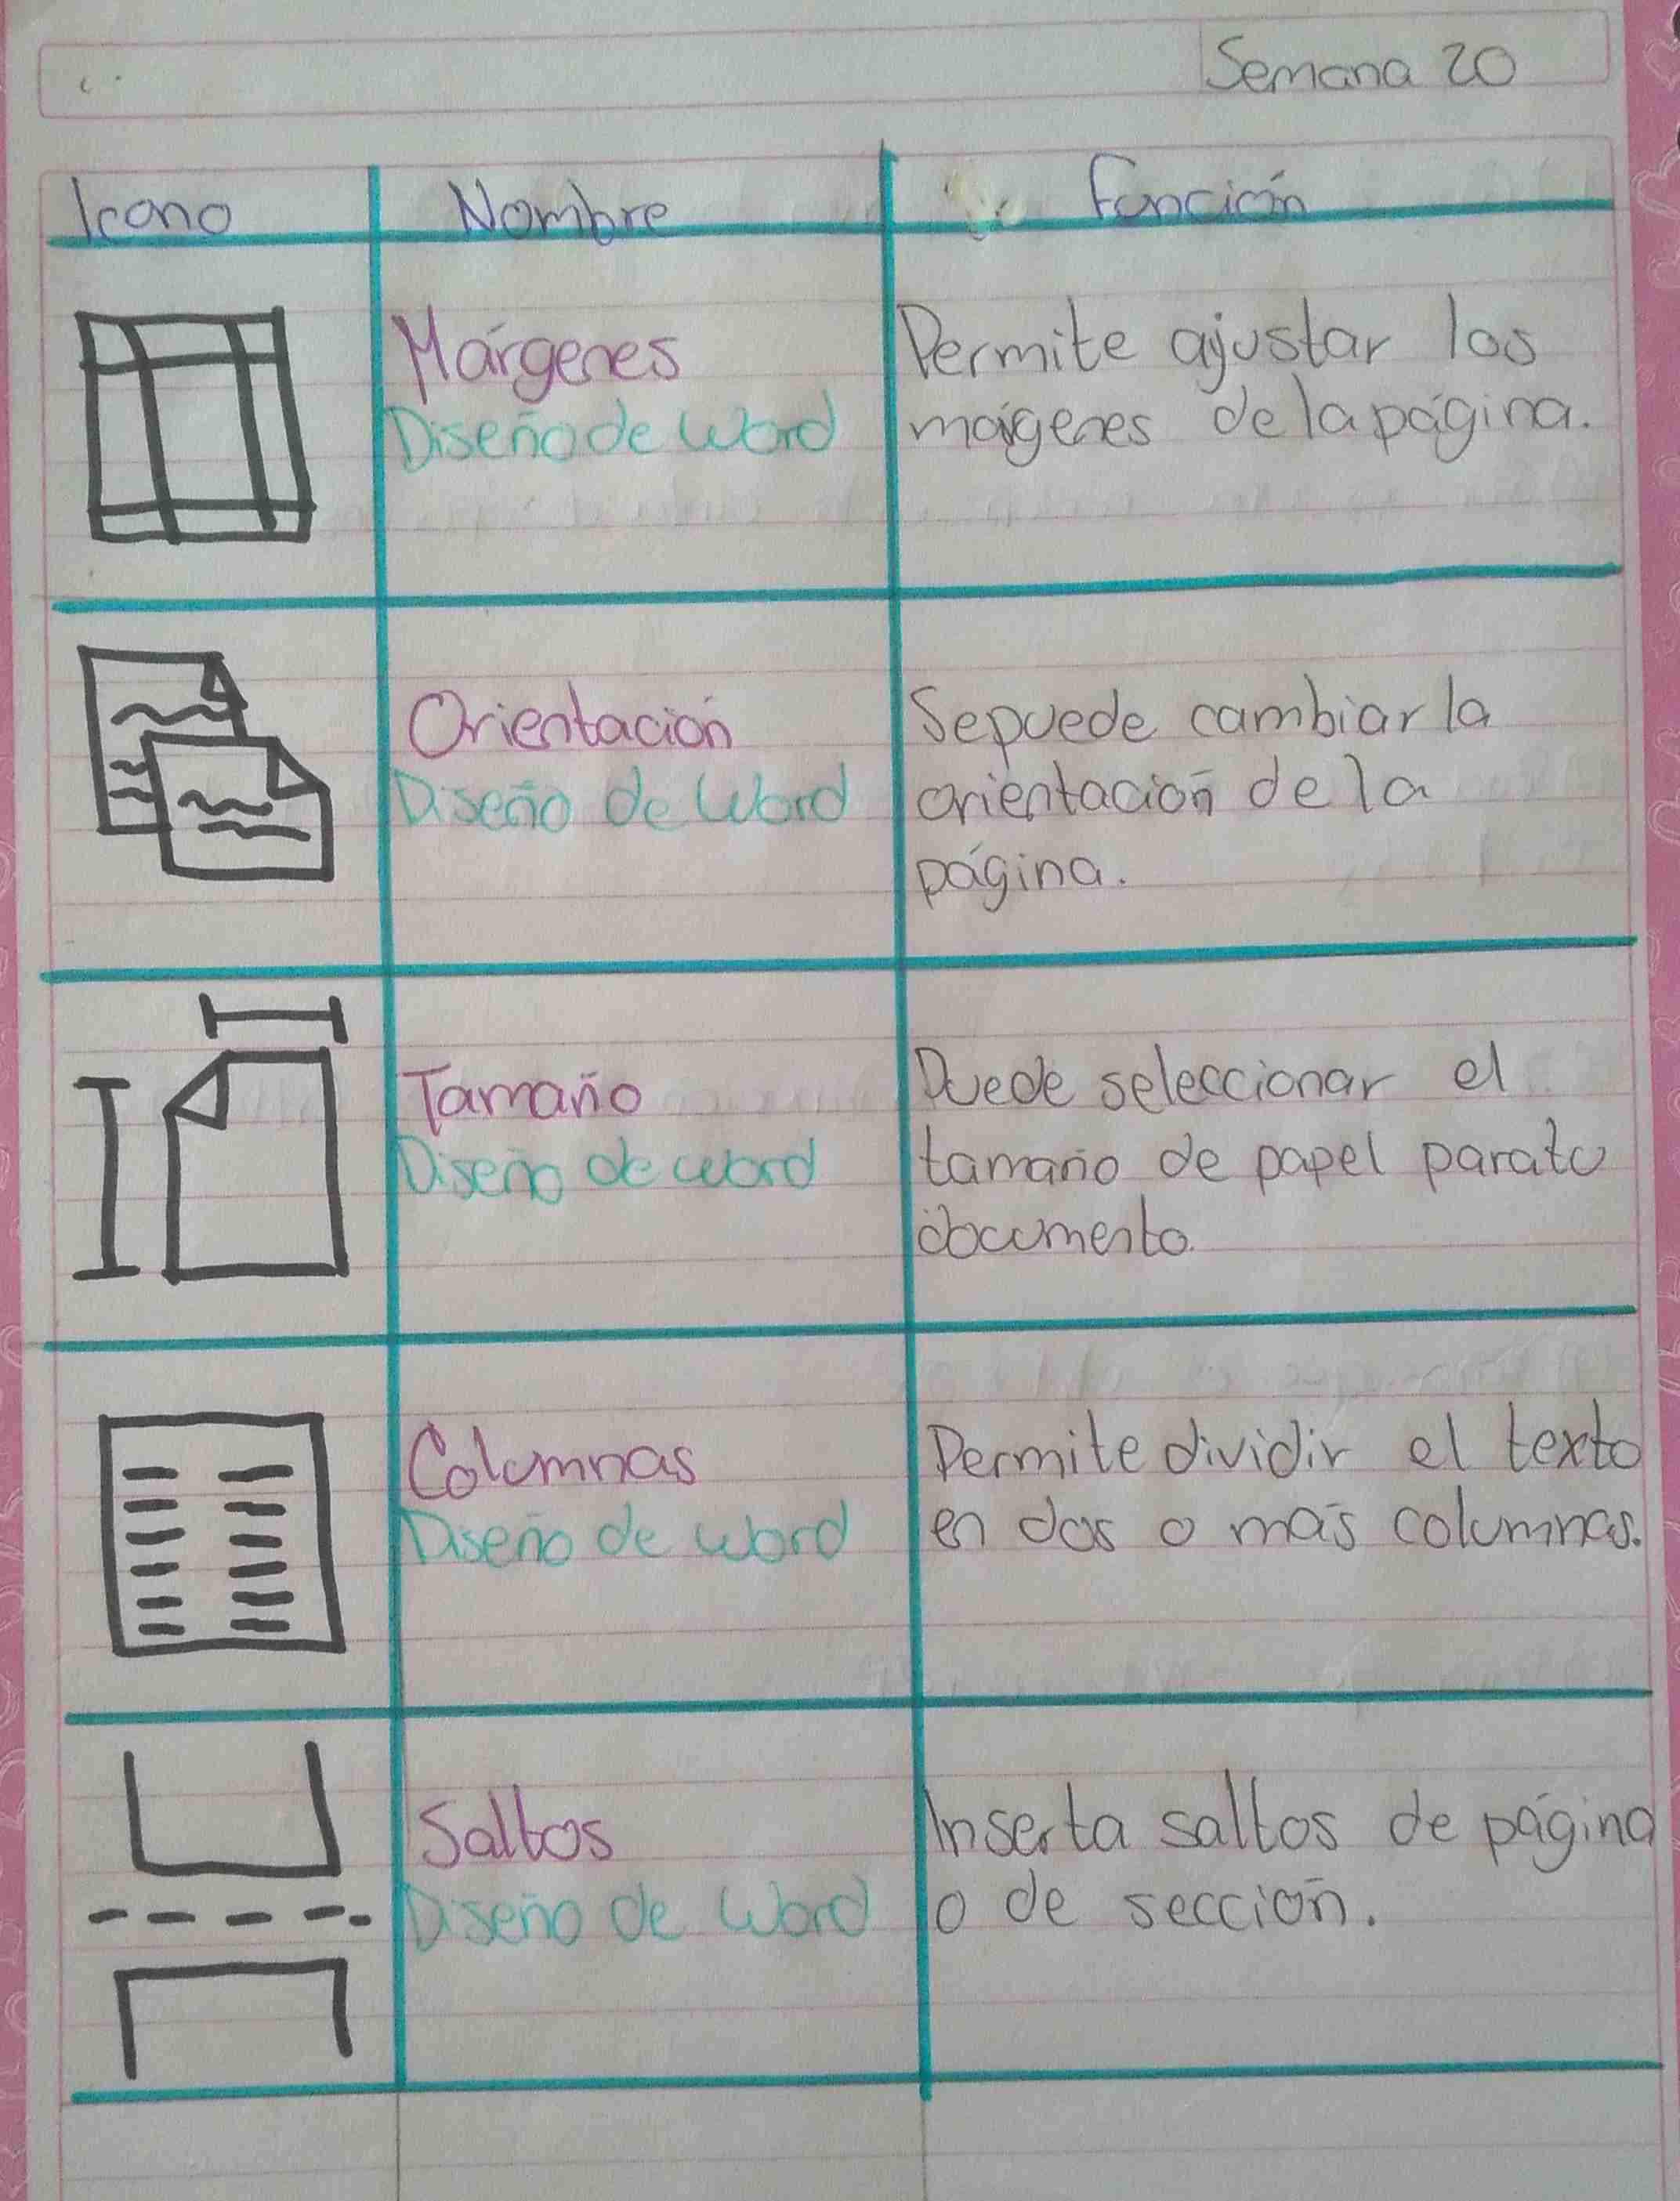 Semana 20
Icono Nombre Función
Márgenes
Diseño de Word
Permite ajustar los
márgenes de la página.
Orientación
Diseño de Word
Se puede cambiar la
orientación de la
página.
Tamaño
Diseño de word
Puede seleccionar el
tamaño de papel para tu
documento.
Columnas
Diseño de word
Permite dividir el texto
en dos o más columnas.
Saltos
Diseño de Word
Inserta saltos de página
o de sección.